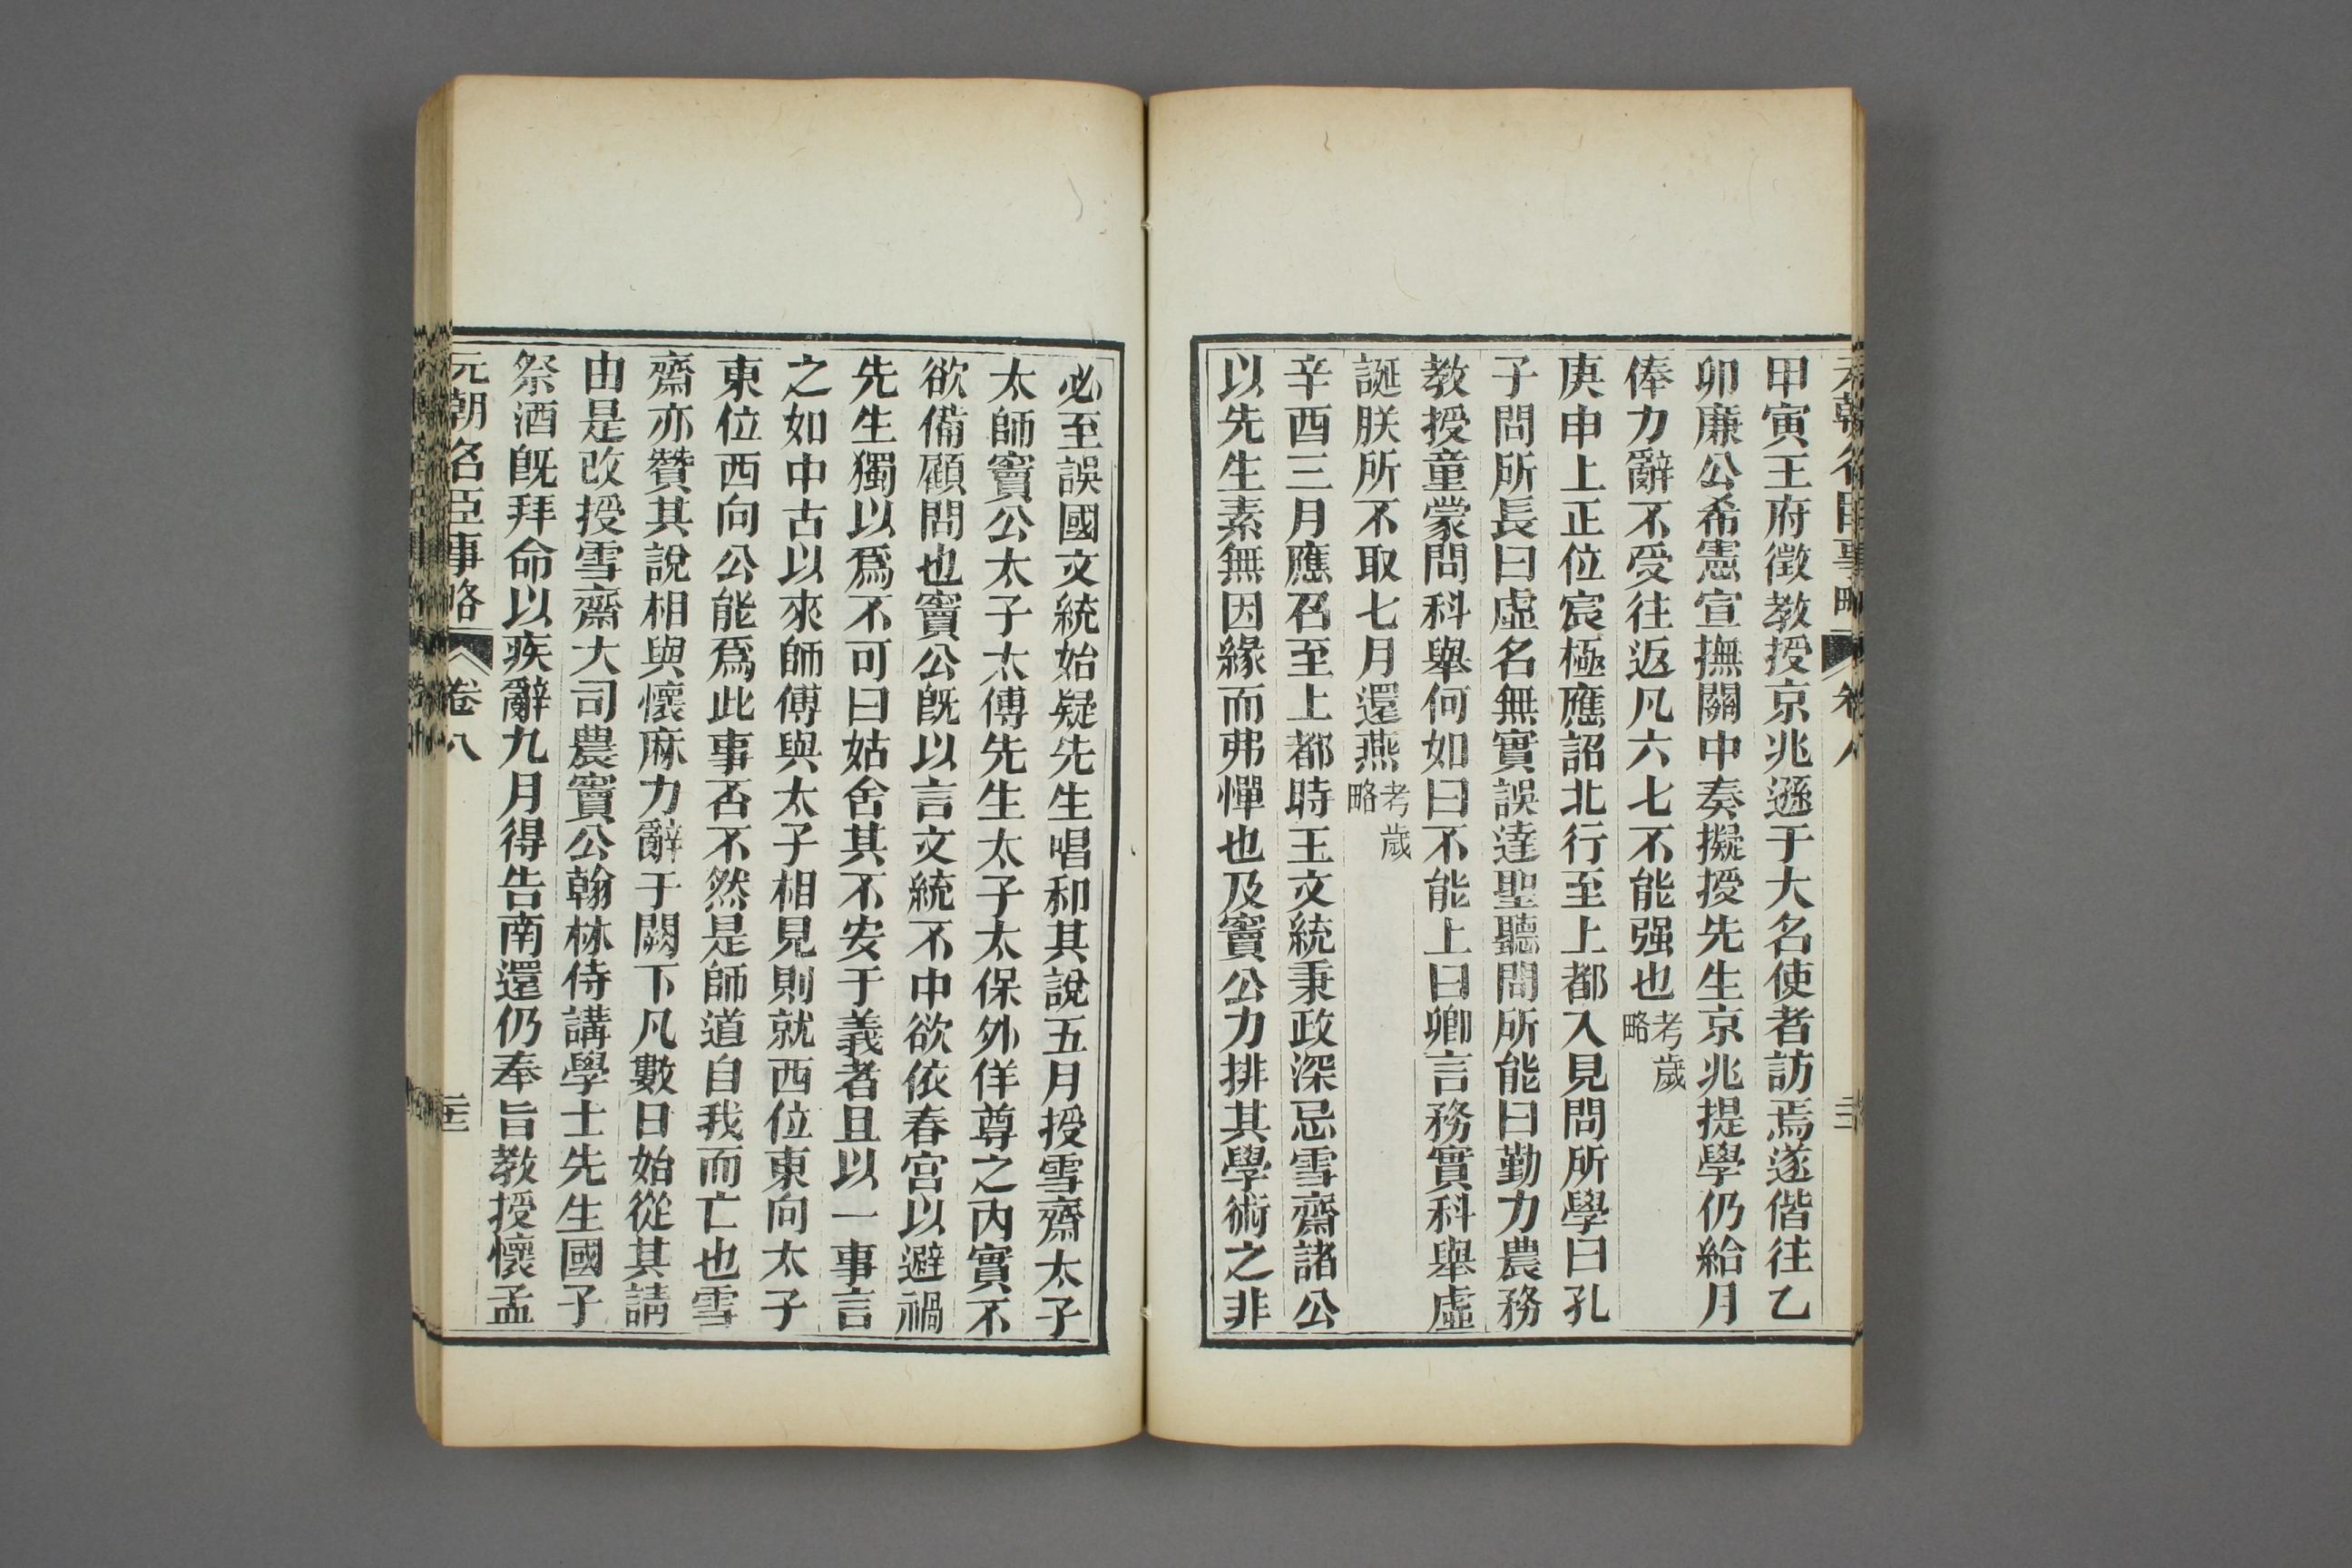 甲寅王府徵教授京兆遜于大名使者訪焉遂偕往乙
卯廉公希憲宣撫關中奏擬授先生京兆提學仍給月
俸力辭不受往返凡六七不能强也考歲略
庚申上正位宸極應詔北行至上都入見問所學曰孔
子問所長曰虛名無實誤達聖聽問所能曰勤力農務
教授童蒙問科舉何如曰不能上曰卿言務實科舉虛
誕朕所不取七月還燕考歲略
辛酉三月應召至上都時王文統秉政深忌雪齋諸公
以先生素無因緣而弗憚也及竇公力排其學術之非
必至誤國文統始疑先生唱和其說五月授雪齋太子
太師竇公太子太傅先生太子太保外佯尊之內實不
欲備顧問也竇公既以言文統不中欲依春宮以避禍
先生獨以爲不可曰姑舍其不安于義者且以一事言
之如中古以來師傅與太子相見則就西位東向太子
東位西向公能爲此事否不然是師道自我而亡也雪
齋亦贊其說相與懷麻力辭于闕下凡數日始從其請
由是改授雪齋大司農竇公翰林侍講學士先生國子
祭酒既拜命以疾辭九月得告南還仍奉旨教授懷孟
元朝名臣事略 卷八